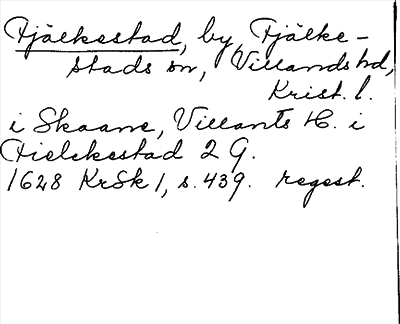 Fjälkestad, by, Fjälke-
stads sn, Villands hd,
Krist. l.
i Skaane, Villants H. i
Fielckestad 2 G.
1628 KrSk 1, s. 439. regest.